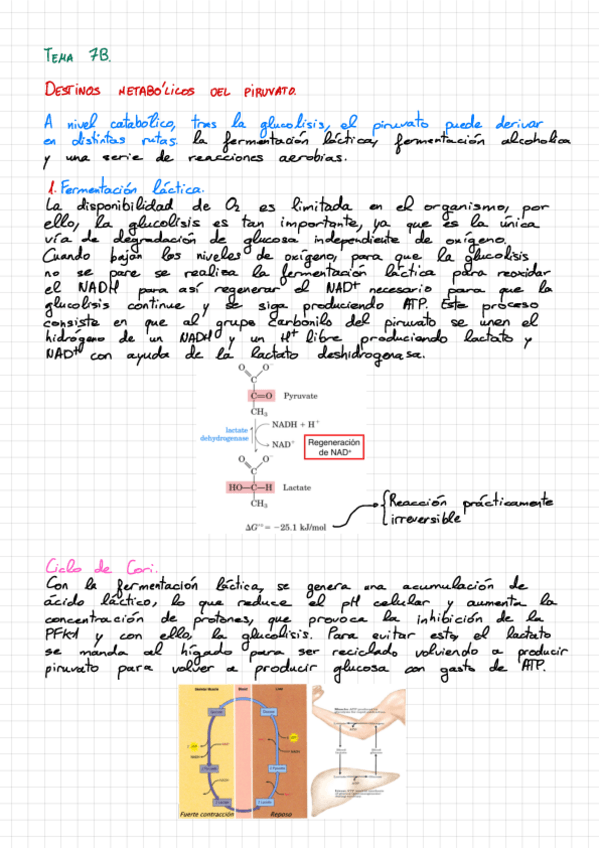 TEMA 7B.
DESTINOS METABÓLICOS DEL PIRUVATO.
A nivel catabólico, tras la glucolisis, el piruvato puede derivar
en distintas rutas: la fermentación láctica, fermentación alcoholica
y una serie de reacciones aerobias.
1. Fermentación láctica.
La disponibilidad de O2 es limitada en el organismo, por
ello, la glucolisis es tan importante, ya que es la única
vía de degradación de glucosa independiente de oxígeno.
Cuando bajan los niveles de oxígeno, para que la glucolisis
no se pare se realiza la fermentación láctica para reoxidar
el NADH para así regenerar el NAD+ necesario para que la
glucolisis continue y se siga produciendo ATP. Este proceso
consiste en que al grupo carbonilo del piruvato se unen el
hidrógeno de un NADH y un H+ libre produciendo lactato y
NAD+ con ayuda de la lactato deshidrogenasa.
O O-
C
C=O Pyruvate
CH3
NADH + H+
lactate
dehydrogenase
NAD+
Regeneración
de NAD+
O O-
C
HO-C-H Lactate
CH3
ΔG'° = −25.1 kJ/mol
Reacción prácticamente
irreversible
Ciclo de Cori.
Con la fermentación láctica, se genera una acumulación de
ácido láctico, lo que reduce el pH celular y aumenta la
concentración de protones, que provoca la inhibición de la
PFK1 y con ello, la glucolisis. Para evitar esto, el lactato
se manda al hígado para ser reciclado volviendo a producir
piruvato para volver a producir glucosa con gasto de ATP.
Skeletal Muscle Blood Liver
Fuerte contracción Reposo